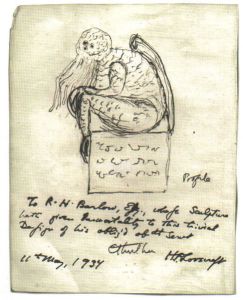 Profile
To R. H. Barlow, Esq., whose Sculpture
hath given Immortality to this trivial
Design of his oblig'd obt Servt
Cthulhu HP Lovecraft
11th May, 1934